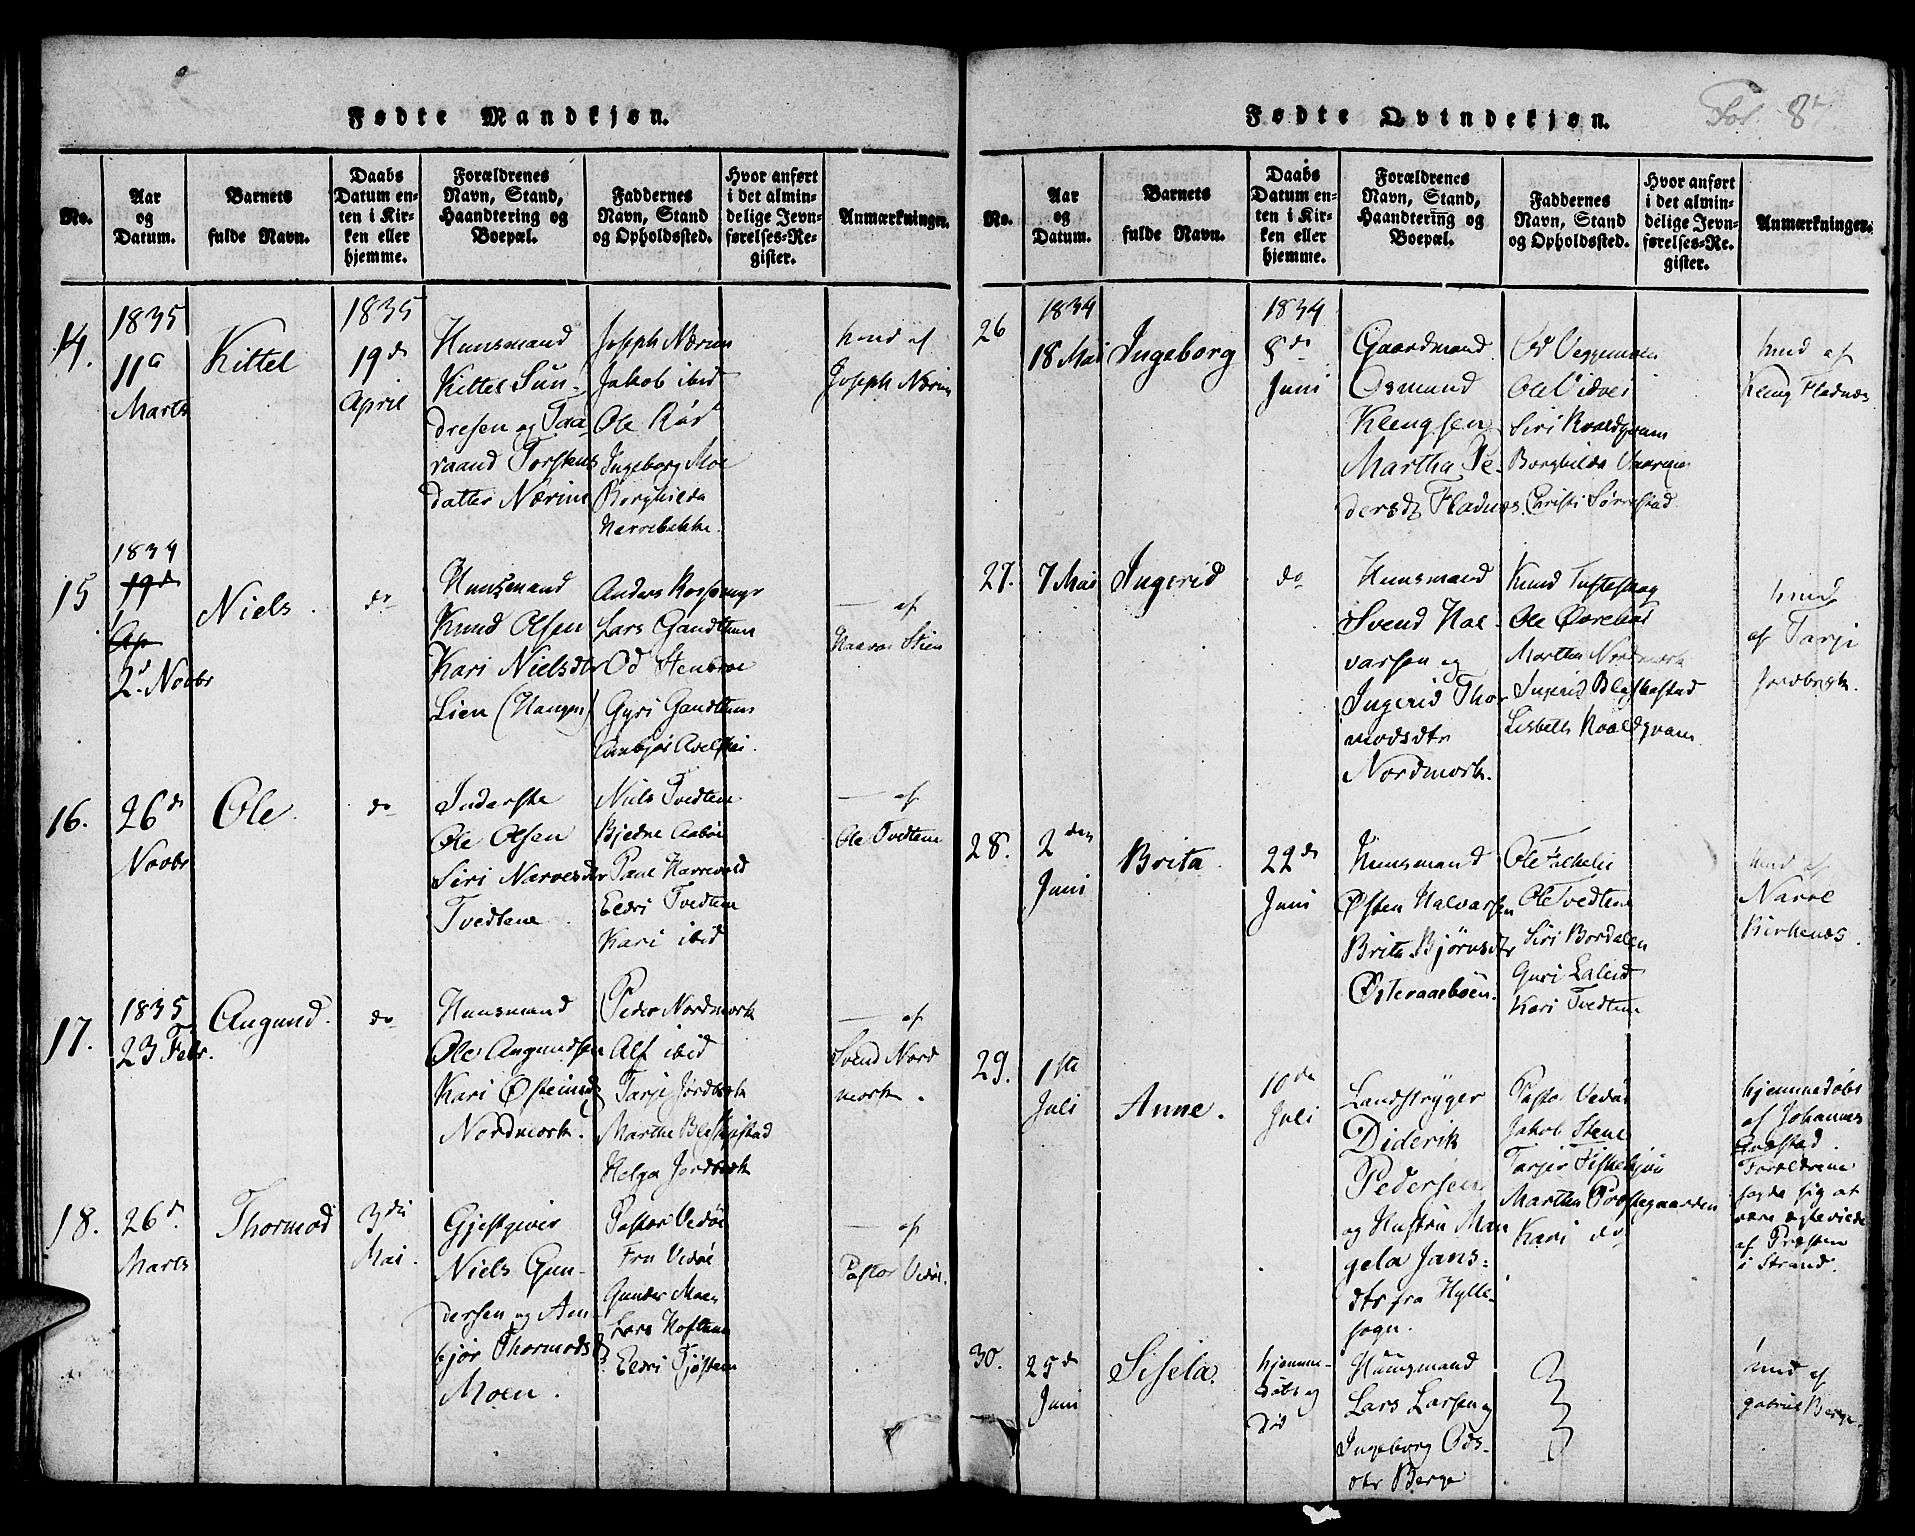 Fødte Mandkjøn.
No.
Aar
og
Datum.
Barnets
fulde Navn.
Daabs
Datum en-
ten i Kir-
ken eller
hjemme.
Forældrenes
Navn, Stand,
Haandtering og
Boepæl.
Faddernes
Navn, Stand
og Opholdssted.
Hvor anført
i det almin-
delige Jevn-
førelses-Re-
gister.
Anmærkninger.
14.
1835
11te
Marts
Kittel
1835
19de
April
Huusmand
Kittel Sun-
dresen og Taa-
raand Torstens
datter Nærim
Joseph Nærim
Jakob ibid
Ole Rød
Ingeborg Moe
Borghilda
Narrebakke.
hmd af
Joseph Nærim
15
1834
19de
Ap
2d Novbr
Niels.
do
Huusmand
Knud Olsen
Kari Nielsdtr
Lien (Haugen)
Anders
Lars Gandthun
Od
Gyri Gandthun
— af
16.
26de
Novbr
Ole.
do
Inderste
Ole Olsen
Siri Narvesdtr
Tvedtene
Niels Tvedtene
Bjedne
Paul
Eldri Tvedtene
Kari ibid
— af
Ole Tvedtene
17.
1835
23 Febr.
Augund.
do
Huusmand
Ole Augundsen
Kari
Nordmork.
Peder Nordmork
Alf ibid
Tarje Jordbrek
Marthe Bleskestad
Helga Jordbrek
— af
Svend Nord
mork.
18.
26de
Marts
Thormod
3die
Mai.
Gjestgiver
Niels Gun-
dersen og An-
bjør Thormodsd
Moen.
Pastor Vedøe
Fru Vedøe
Gunder Moen
Lars Hoftun
Eldri Tjøstem
— af
Pastor Vedøe.
Fødte Qvindekjøn.
Fol. 8
No.
Aar
og
Datum.
Barnets
fulde Navn.
Daabs
Datum en-
ten i Kir-
ken eller
hjemme.
Forældrenes
Navn, Stand,
Haandtering og
Boepæl.
Faddernes
Navn, Stand
og Opholdssted.
Hvor anført
i det almin-
delige Jevn-
førelses-Re-
gister.
Anmærkninger.
26
1834
18 Mai
Ingeborg
1834
8de
Juni
Gaardmand
Osmund
Klengsen
Martha Pe-
dersdtr Fladnæs.
Ole
Siri
Borghilda
Christi Sørestad
hmd af
Kleng Fladnæs
27.
7 Mai
Ingerid
do
Huusmand
Svend Hal-
varsen og
Ingerid Thor
modsdtr
Nordmork.
Knud
Ole
Marthe Nordmork
Ingerid Bleskestad
Lisbeth
hmd
af Tarje
Jordbrek.
28.
2den
Juni
Brita
22de
Juni
Huusmand
Østen Halvarsen
Brita Bjørnsdtr
Østeraaebøen.
Ole
Ole Tvedtene
Siri Bordalen
Guri
Kari Tvedtene
hmd af
Narve
Birkenæs.
29.
1ste
Juli
Anne.
10de
Juli
Landstryger
Diderik
Pedersen
og Hustru Man
gela Jans-
dtr fra Hylle-
sogn.
Pastor Vedøe
Jakob Stene
Tarjer
Marthe Præstegaarden
Kari do
hjemmedøbt
af Johannes
Græstad.
Forældrene
sagde sig at
være egteviede
af Præsten
i Strand.
30.
25de
Juni
Sisela.
hjemme-
døbt og
død
Huusmand
Lars Larsen og
Ingeborg Ods-
dtr Berge
hmd af
gabriel Berge.